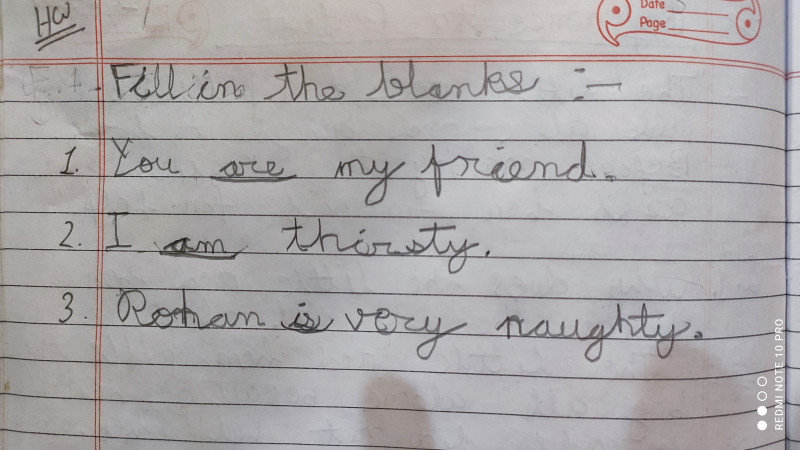 HW
Date
Page
Fill in the blanks :-
1. You are my friend.
2. I am thirsty.
3. Rohan is very naughty.
REDMI NOTE 10 PRO